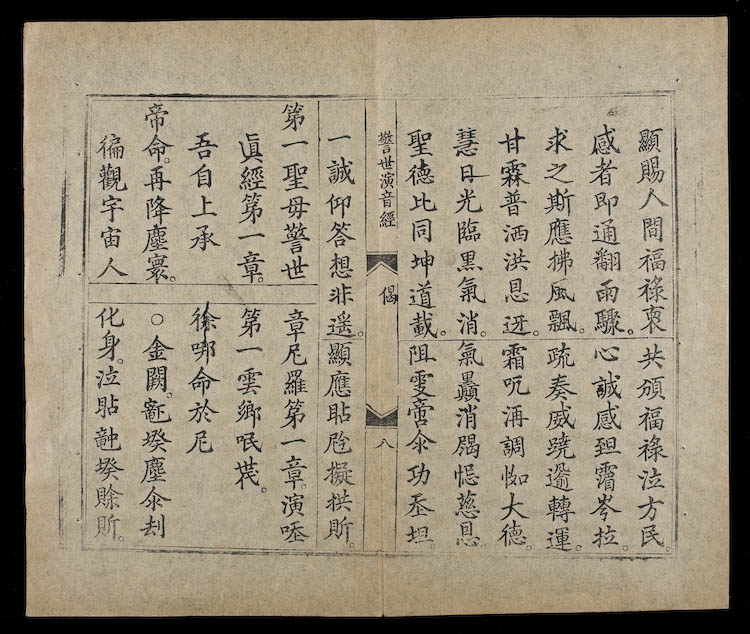 顯賜人間福祿衷 共頒福祿泣方民。
感者即通翻雨驟。 心誠感𦤾岑拉。
求之斯應拂風飄。 疏奏威蹺轉運
甘霖普洒洪恩迓。 霜咒洅調大德。
慧日光臨黑氣消。 氣消慈恩。
聖德比同坤道載。 阻功丕坦。
警世演音經 偈 八
一誠仰答想非遥。 顯應貼擬拱斯。
第一聖母警世
眞經第一章。
吾自上承
帝命。再降塵寰。
徧觀宇宙人
章尼羅第一章。演
第一雲鄉
命於尼
○金闕。塵𠆳刦
化身。泣貼賒斯。